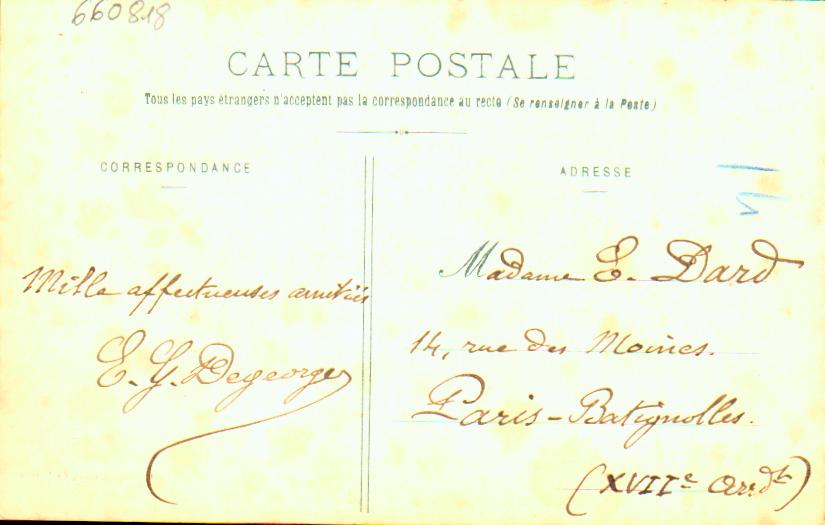 660818
CARTE POSTALE
Tous les pays étrangers n'acceptent pas la correspondance au recto (Se renseigner à la Poste)
CORRESPONDANCE
Mille affectueuses amitiés
E. G. Degeorges
ADRESSE
Madame E. Dard
14, rue des Moines.
Paris-Batignolles.
(XVIIe Ardt)